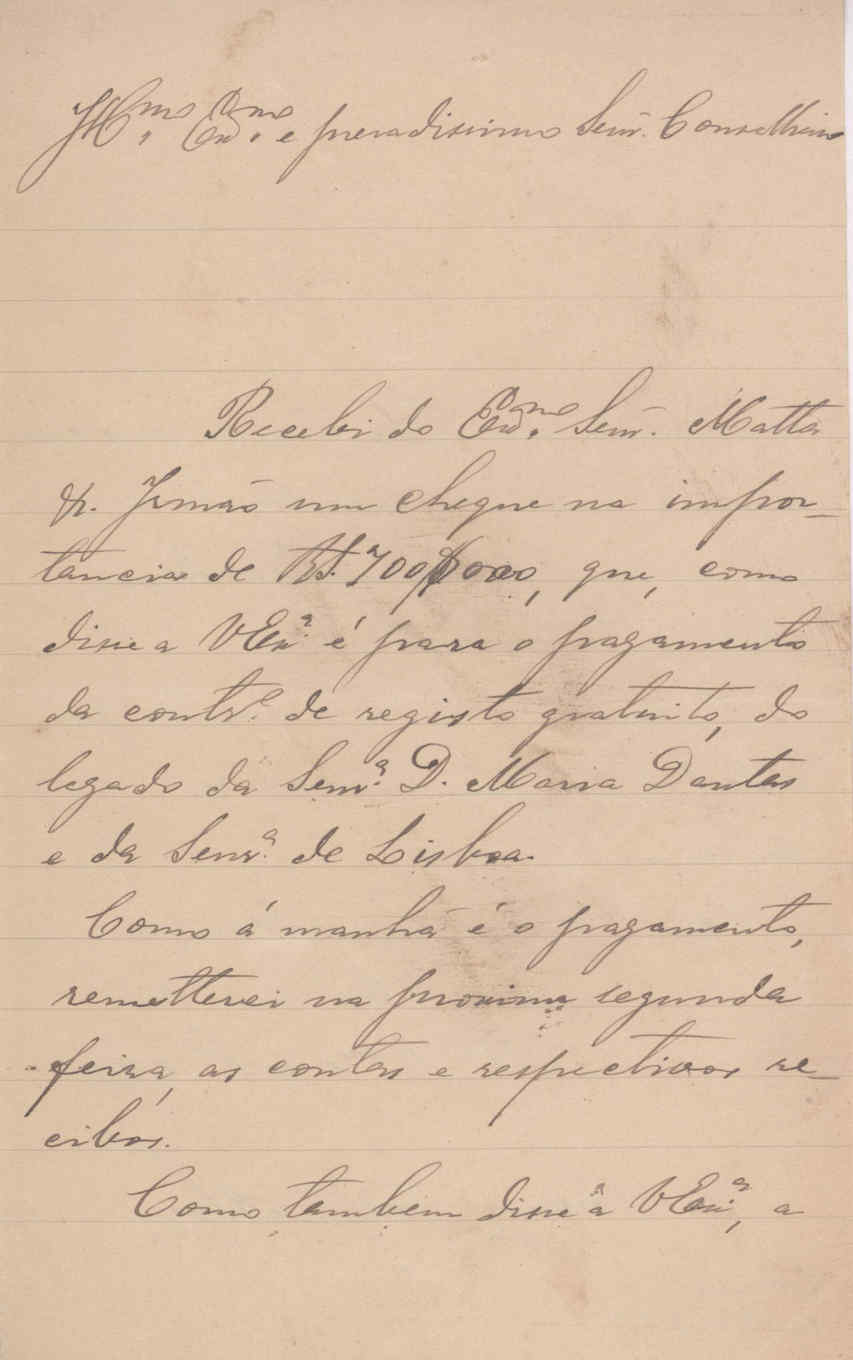 Ill.mo Ex.mo e presadissimo Senr. Conselheiro
Recebi do Ex.mo Senr. Matta
& Irmão um cheque na impor-
tancia de Rs. 700$000, que, como
disse a VEx.ª é para o pagamento
da contr.e de registo gratuito, do
legado da Senr.ª D. Maria Dantas
e da Senr.ª de Lisboa.
Como á manhã é o pagamento,
remetterei na proxima segunda
feira, as contas e respectivos re-
cibos.
Como tambem disse a VEx.ª, a